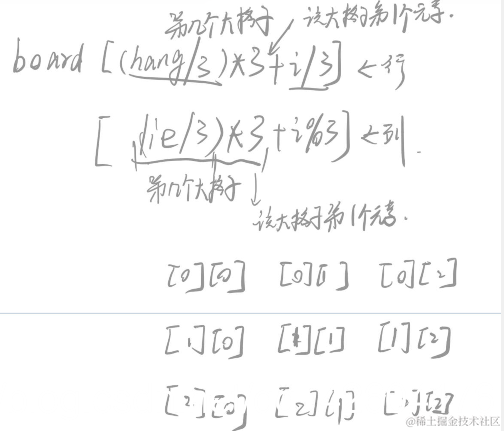 第几个大格子 该大格子第1个元素.
board [(hang/3)*3+i/3] ←行
[(lie/3)*3+i%3] ←列.
第几个大格子
该大格子第1个元素.
[0][0] [0][1] [0][2]
[1][0] [1][1] [1][2]
[2][0] [2][1] [2][2]
@稀土掘金技术社区